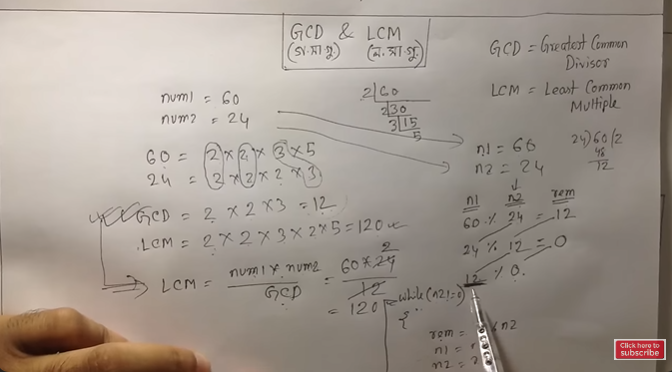 GCD & LCM
(গ.সা.গু) (ল.সা.গু.)
GCD = Greatest Common
Divisor
LCM = Least Common
Multiple
num1 = 60
num2 = 24
2 60
2 30
3 15
5
60 = 2 × 2 × 3 × 5
24 = 2 × 2 × 2 × 3
GCD = 2 × 2 × 3 = 12
LCM = 2 × 2 × 3 × 2 × 5 = 120
LCM = num1 × num2 / GCD = 60 × 24 2 / 12
= 120
n1 = 60
n2 = 24
24) 60 / 2
48
12
n1 n2 rem
60 % 24 = 12
24 % 12 = 0
12 % 0
while (n2!=0)
{
rem = n2
n1 =
n2 =
Click here to
Subscribe